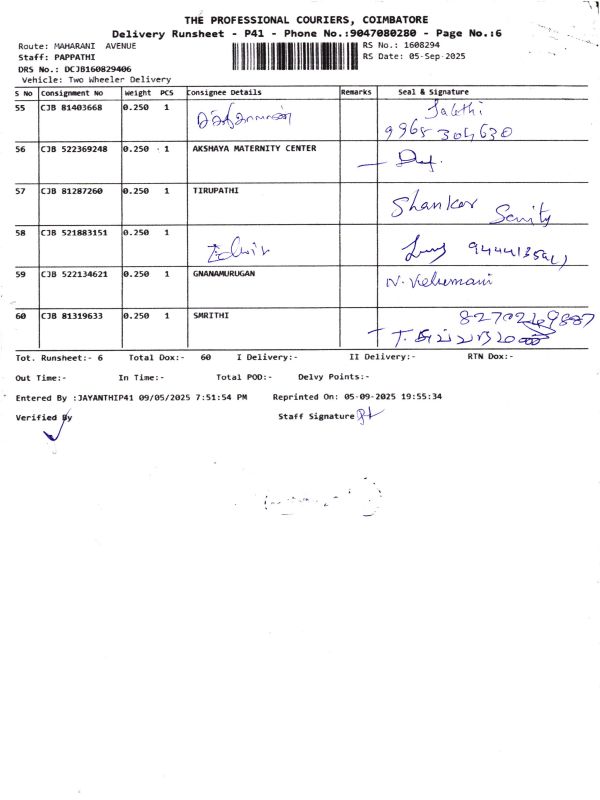 THE PROFESSIONAL COURIERS, COIMBATORE
Delivery Runsheet - P41 - Phone No.:9047080280 - Page No.:6
Route: MAHARANI AVENUE
RS No.: 1608294
Staff: PAPPATHI
RS Date: 05-Sep-2025
DRS No.: DCJB160829406
Vehicle: Two Wheeler Delivery
S No Consignment No Weight PCS Consignee Details Remarks Seal & Signature
55 CJB 81403668 0.250 1
56 CJB 522369248 0.250 1 AKSHAYA MATERNITY CENTER
57 CJB 81287260 0.250 1 TIRUPATHI Shankar
58 CJB 521883151 0.250 1
59 CJB 522134621 0.250 1 GNANAMURUGAN N. Velumani
60 CJB 81319633 0.250 1 SMRITHI
Tot. Runsheet:- 6 Total Dox:- 60 I Delivery:- II Delivery:- RTN Dox:-
Out Time:- In Time:- Total POD:- Delvy Points:-
Entered By :JAYANTHIP41 09/05/2025 7:51:54 PM Reprinted On: 05-09-2025 19:55:34
Verified By Staff Signature